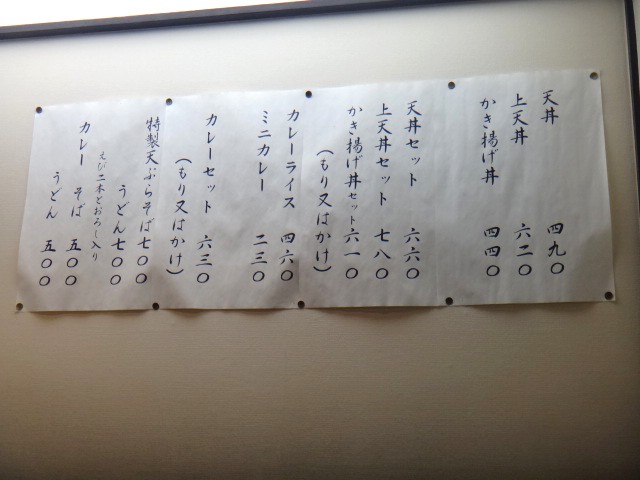 天丼 四九〇
上天丼 六二〇
かき揚げ丼 四四〇
天丼セット 六六〇
上天丼セット 七八〇
かき揚げ丼セット 六一〇
(もり又はかけ)
カレーライス 四六〇
ミニカレー 二三〇
カレーセット 六三〇
(もり又はかけ)
特製天ぷらそば 七〇〇
うどん 七〇〇
えび二本とおろし入り
カレー そば 五〇〇
うどん 五〇〇